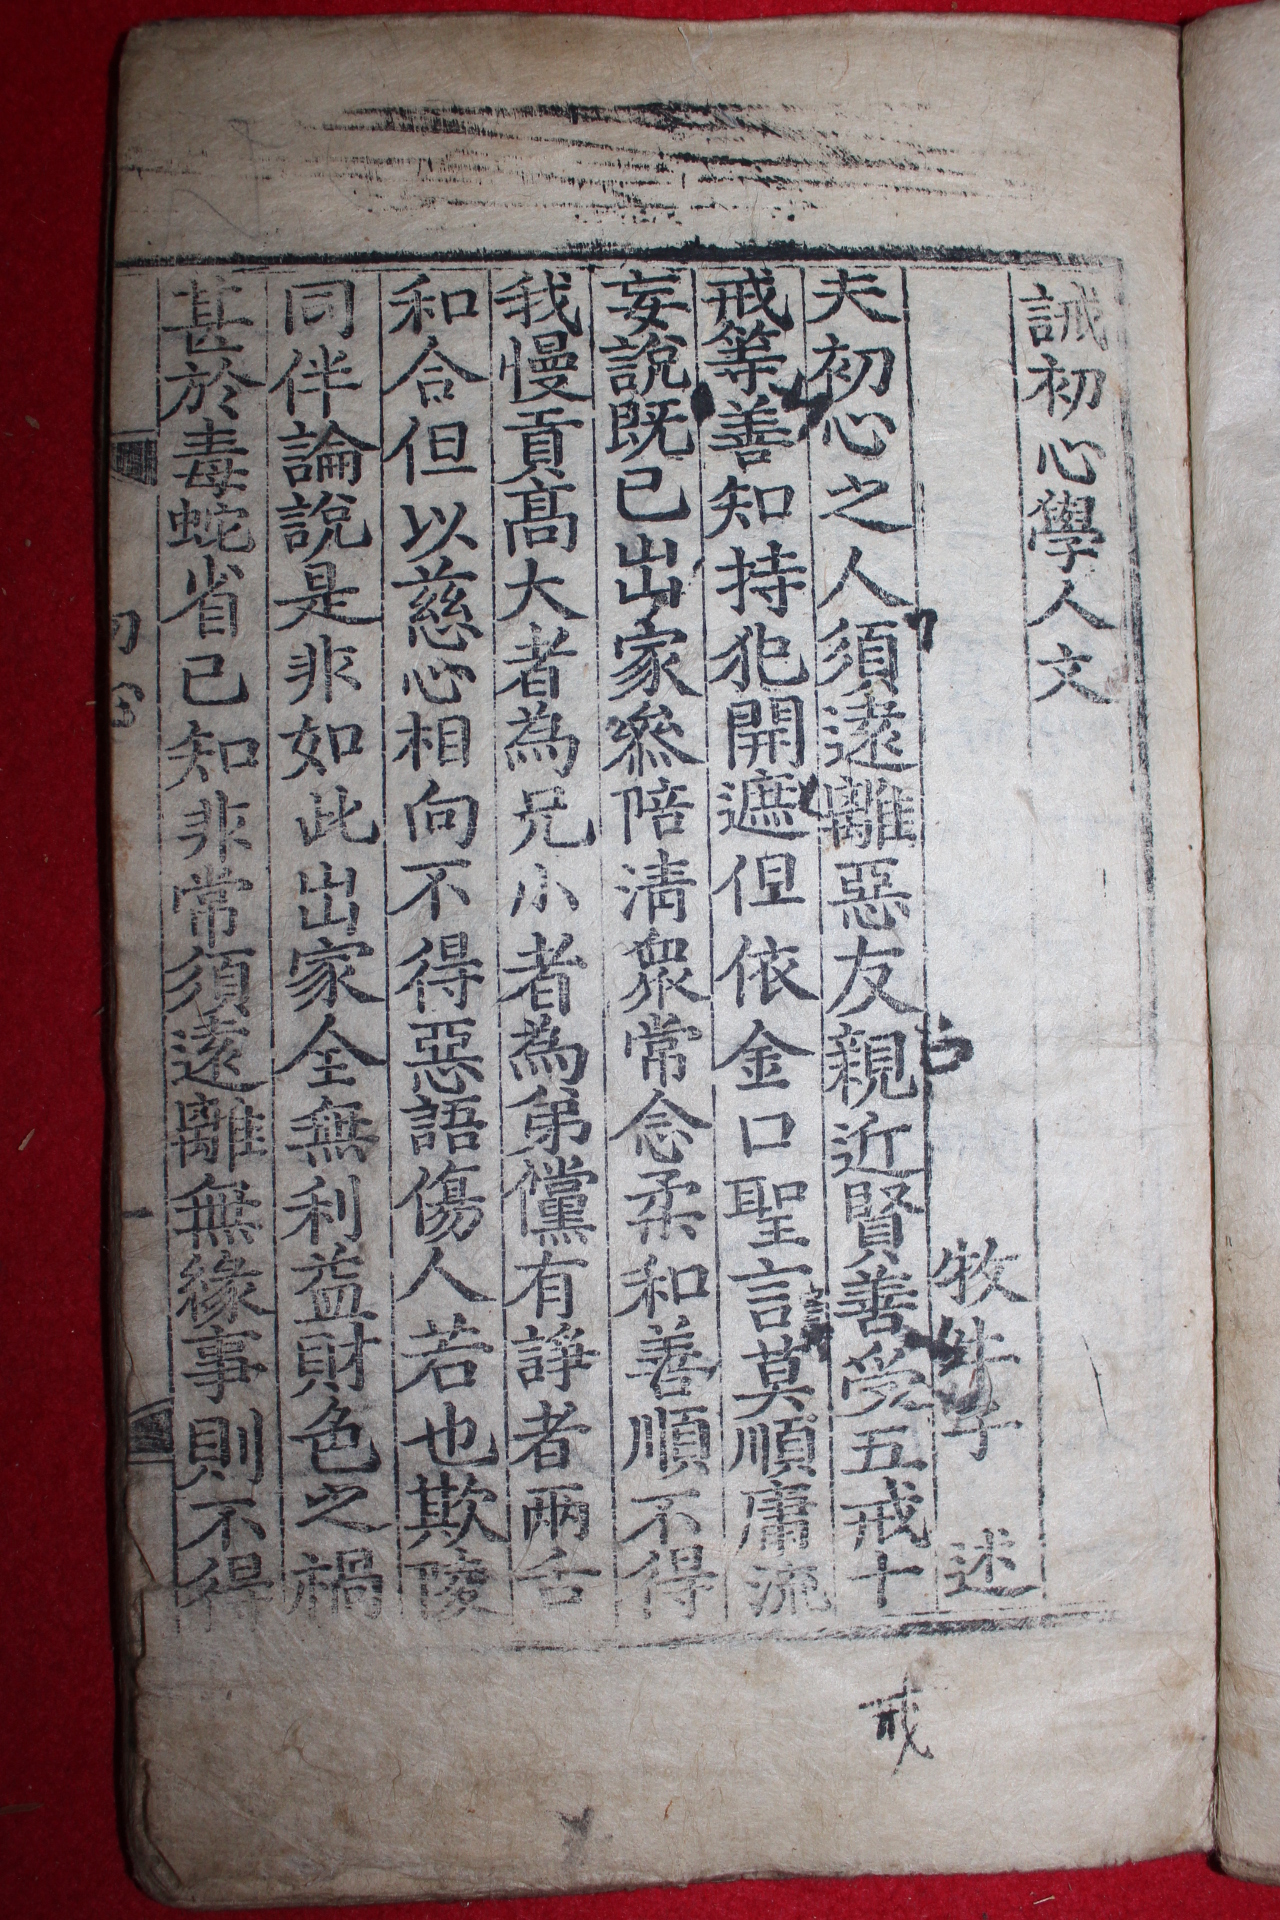 誡初心學人文
牧牛子 述
夫初心之人須遠離惡友親近賢善受五戒十
戒等善知持犯開遮但依金口聖言莫順庸流
妄說既已出家叅陪清衆常念柔和善順不得
我慢貢髙大者為兄小者為弟儻有諍者兩舌
和合但以慈心相向不得惡語傷人若也欺陵
同伴論說是非如此出家全無利益財色之禍
甚於毒蛇省己知非常須遠離無緣事則不得
戒